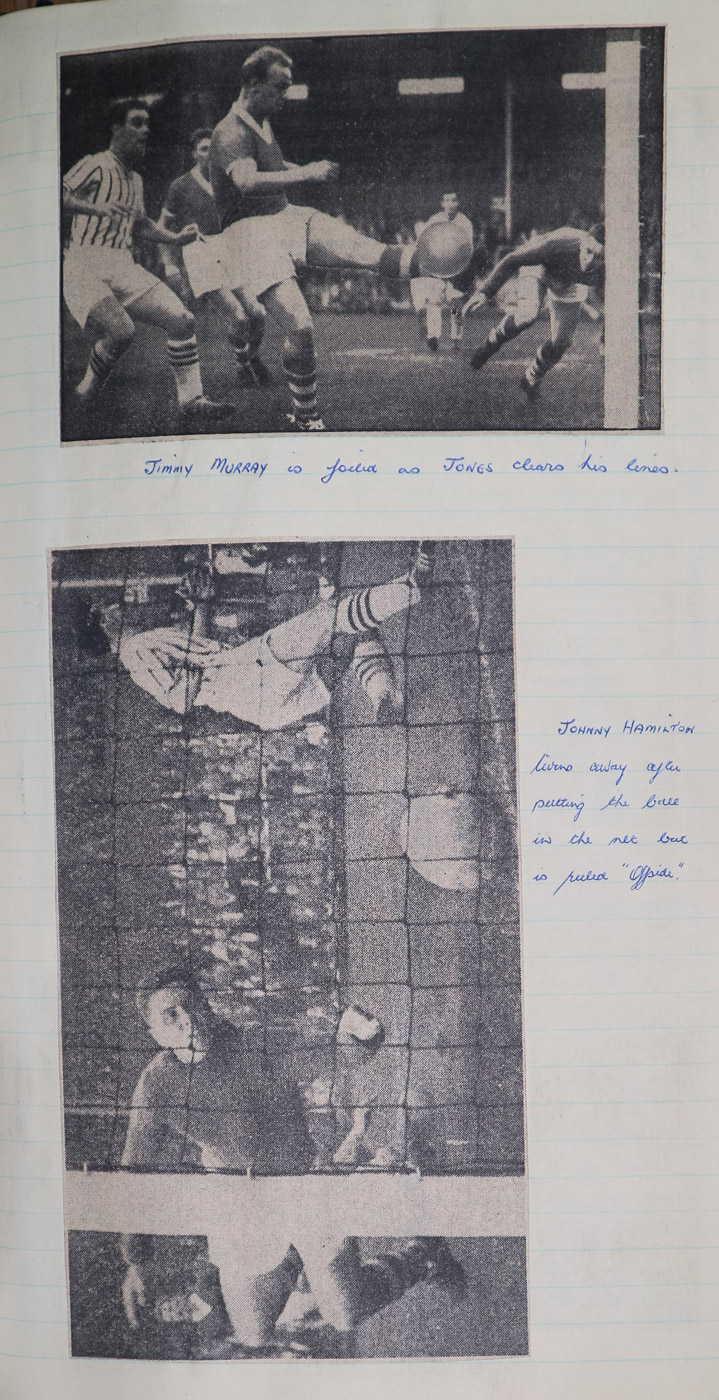 JIMMY MURRAY is foiled as JONES clears his lines.
JOHNNY HAMILTON
turns away after
putting the ball
in the net but
is ruled "Offside".